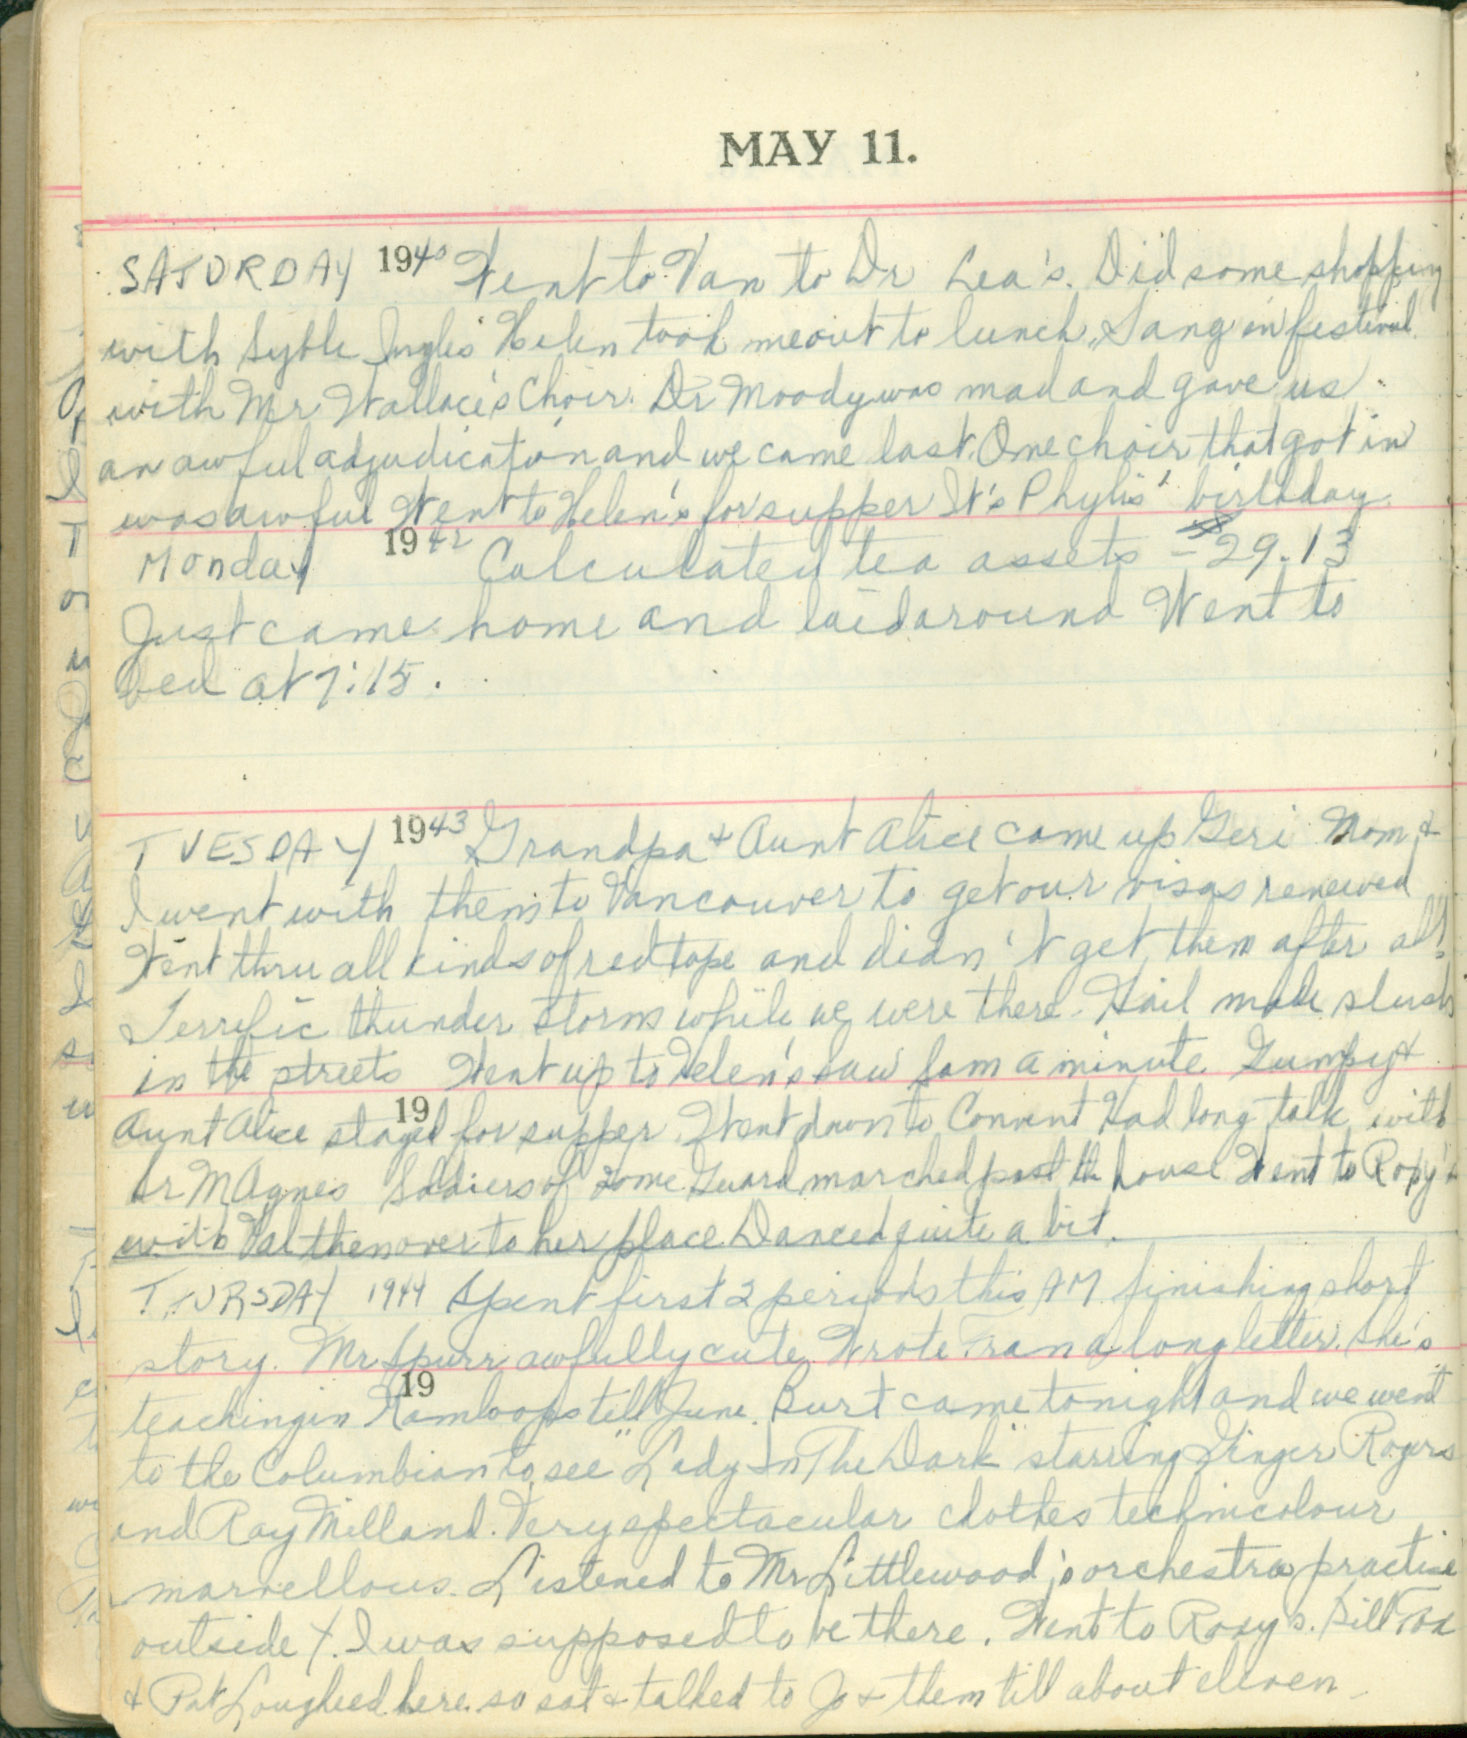 MAY 11.
SATURDAY 1940 Went to Van to Dr Lea's. Did some shopping
with Syble Inglis Helen took me out to lunch. Sang in festival
with Mr Wallace's Choir. Dr Moody was mad and gave us
an awful adjudication and we came last. One choir that got in
was awful Went to Helen's for supper It's Phylis' birthday.
Monday 1942 Calculated tea assets - 29.13
Just came home and laid around Went to
bed at 7:15.
TUESDAY 1943 Grandpa & Aunt Alice came up Geri Mom &
I went with them to Vancouver to get our visas renewed
Went thru all kinds of red tape and didn't get them after all!
Terrific thunder storm while we were there. Hail made slush
in the streets Went up to Helen's saw Sam a minute Gumpy &
19
Aunt Alice stayed for supper. Went down to Convent Had long talk with
Sr M Agnes Soldiers of Home Guard marched past the house Went to Roxy's
with Val then over to her place Danced quite a bit.
THURSDAY 1944 Spent first 2 periods this AM finishing short
story. Mr Spurr awfully cute. Wrote Fran a long letter. She's
19
teaching in Kamloops till June. Burt came tonight and we went
to the Columbian to see "Lady In The Dark" starring Ginger Rogers
and Ray Milland. Very spectacular clothes technicolour
marvellous. Listened to Mr Littlewood's orchestra practise
outside. I was supposed to be there. Went to Roxy's. Bill Fox
& Pat Lougheed here so sat & talked to Jo & them till about eleven